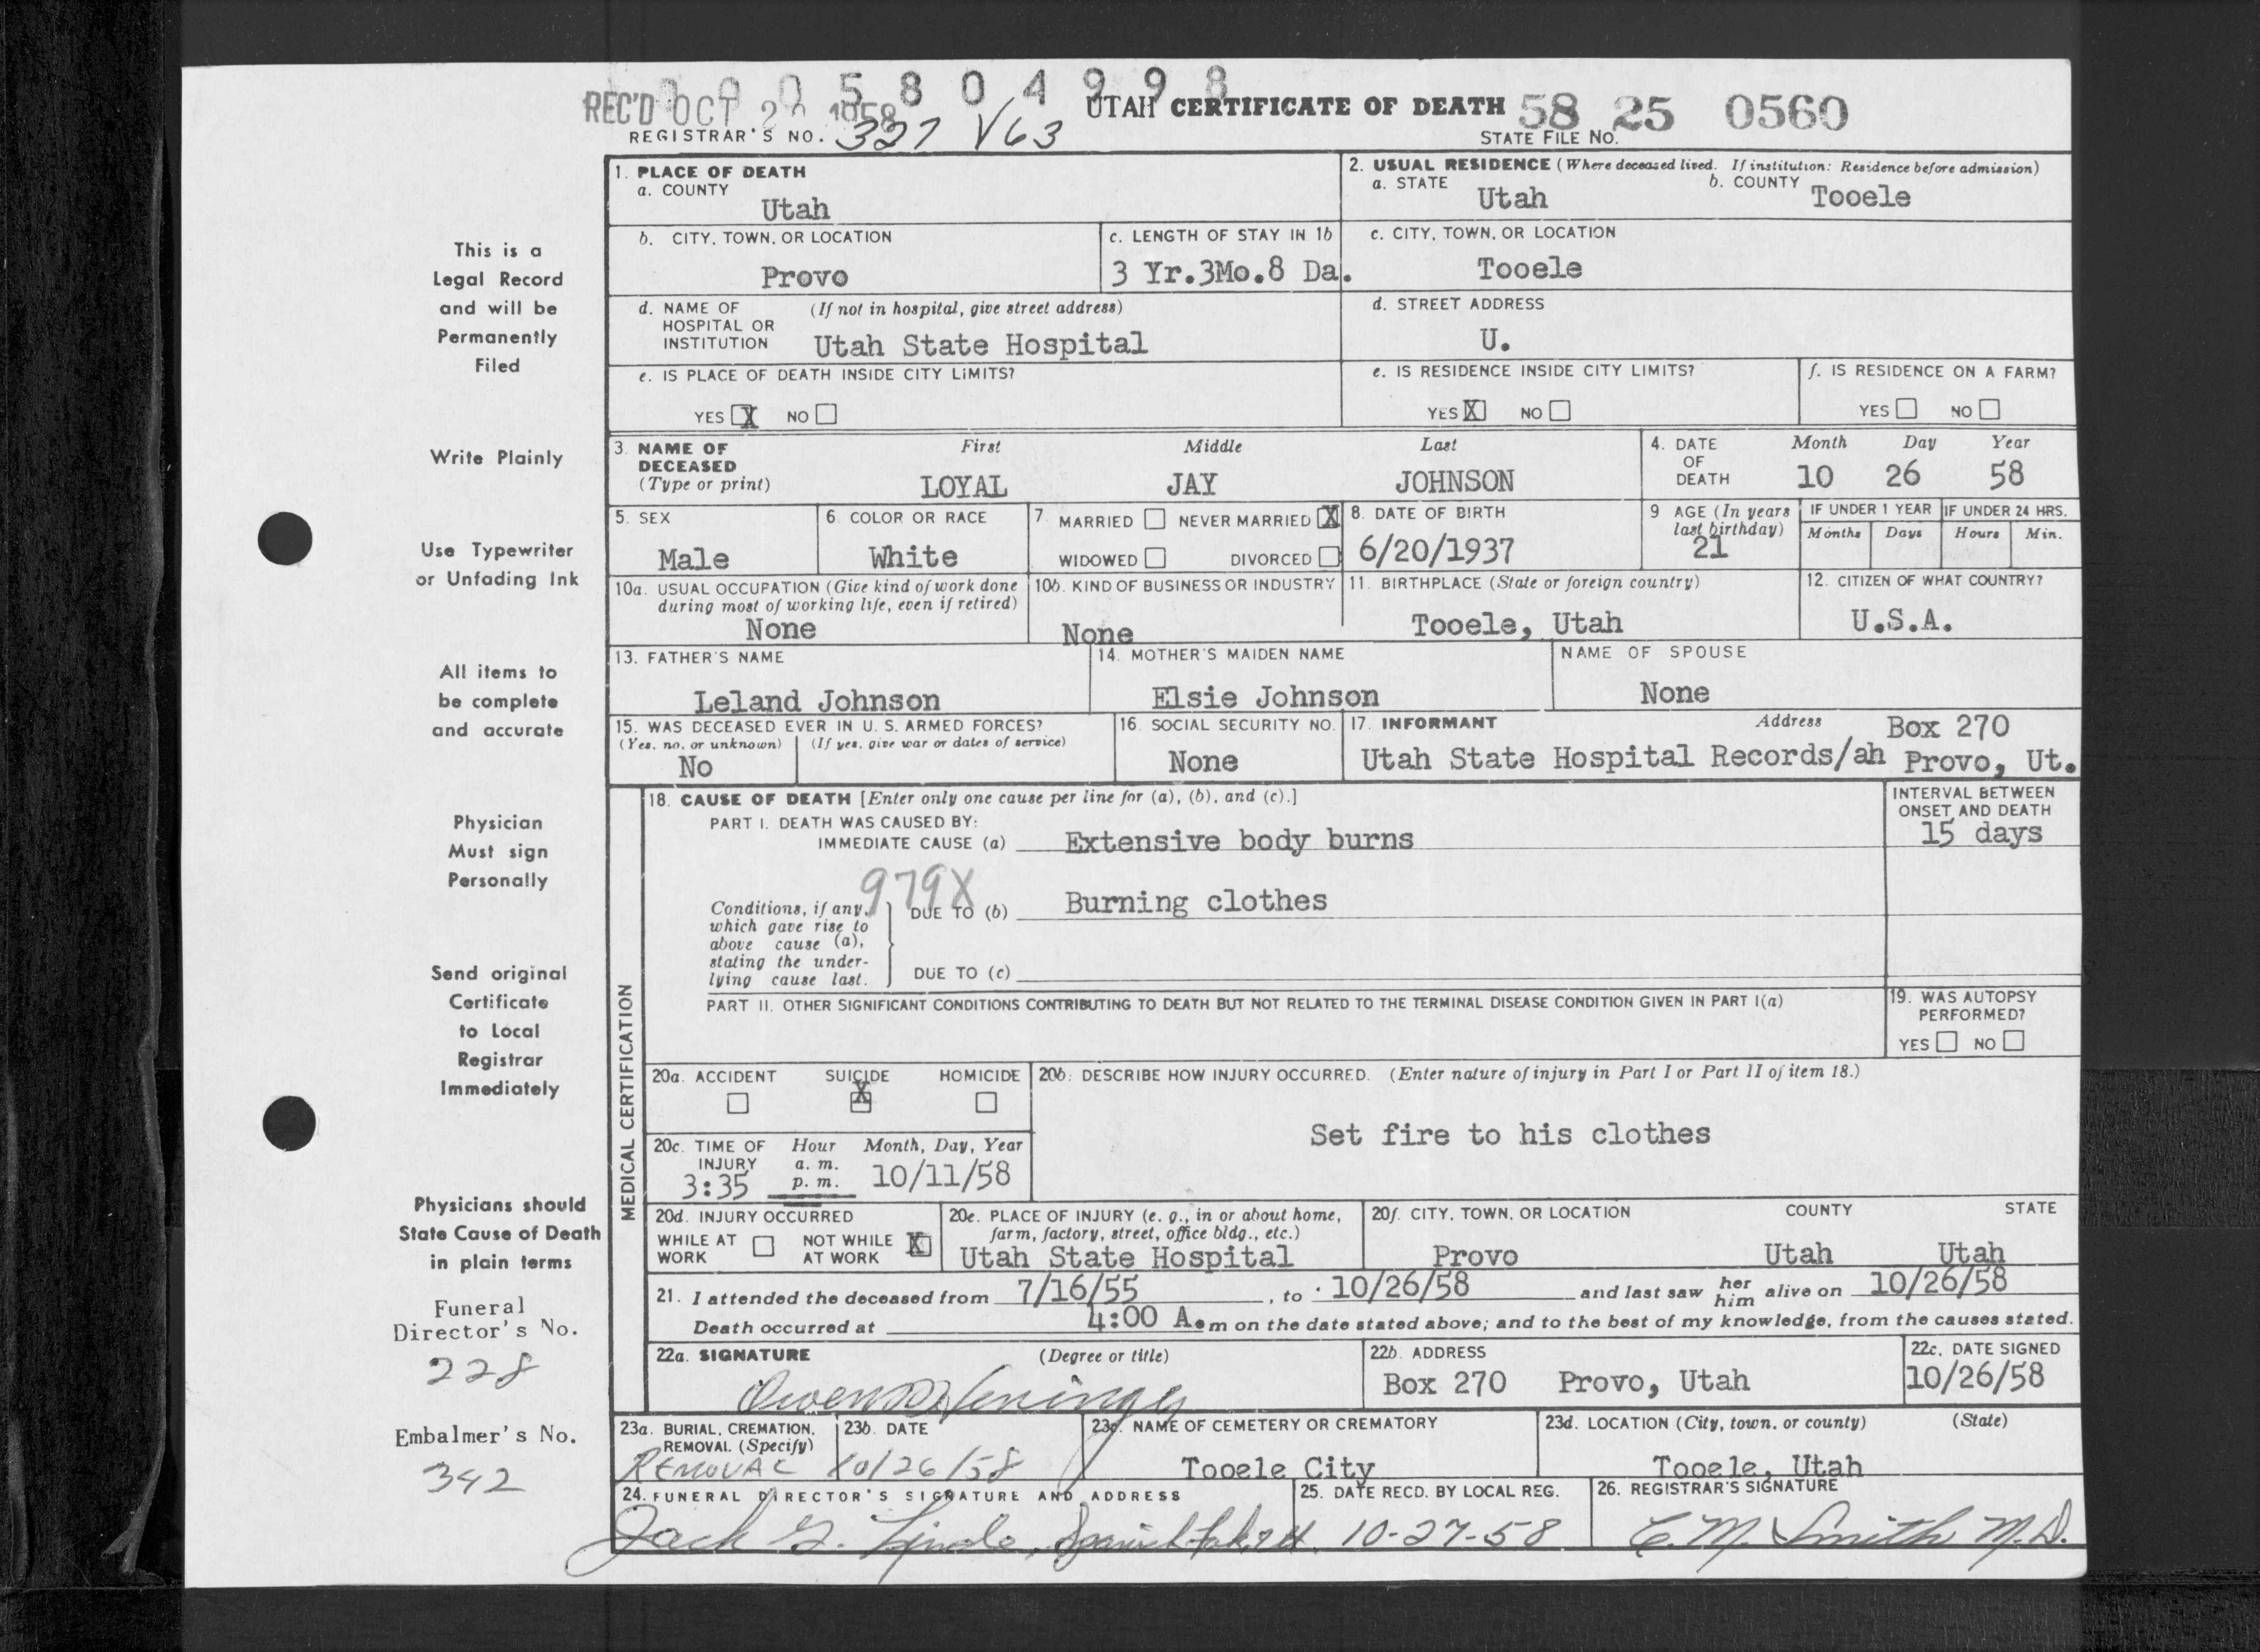 0 0 0 5 8 0 4 9 9 8
REC'D OCT 1958 UTAH CERTIFICATE OF DEATH 58 25 0560
REGISTRAR'S NO. 327 V63 STATE FILE NO.
1. PLACE OF DEATH
a. COUNTY
Utah
2. USUAL RESIDENCE (Where deceased lived. If institution: Residence before admission)
a. STATE Utah b. COUNTY Tooele
b. CITY, TOWN, OR LOCATION
Provo
c. LENGTH OF STAY IN 1b
3 Yr.3Mo.8 Da.
c. CITY, TOWN, OR LOCATION
Tooele
d. NAME OF HOSPITAL OR INSTITUTION (If not in hospital, give street address)
Utah State Hospital
d. STREET ADDRESS
U.
e. IS PLACE OF DEATH INSIDE CITY LIMITS?
YES X NO
e. IS RESIDENCE INSIDE CITY LIMITS?
YES X NO
f. IS RESIDENCE ON A FARM?
YES NO
3. NAME OF DECEASED (Type or print)
First Middle Last
LOYAL JAY JOHNSON
4. DATE OF DEATH
Month Day Year
10 26 58
5. SEX
Male
6. COLOR OR RACE
White
7. MARRIED NEVER MARRIED X
WIDOWED DIVORCED
8. DATE OF BIRTH
6/20/1937
9 AGE (In years last birthday)
21
IF UNDER 1 YEAR
Months Days
IF UNDER 24 HRS.
Hours Min.
10a. USUAL OCCUPATION (Give kind of work done during most of working life, even if retired)
None
10b. KIND OF BUSINESS OR INDUSTRY
None
11. BIRTHPLACE (State or foreign country)
Tooele, Utah
12. CITIZEN OF WHAT COUNTRY?
U.S.A.
13. FATHER'S NAME
Leland Johnson
14. MOTHER'S MAIDEN NAME
Elsie Johnson
NAME OF SPOUSE
None
15. WAS DECEASED EVER IN U. S. ARMED FORCES?
(Yes, no, or unknown) (If yes, give war or dates of service)
No
16. SOCIAL SECURITY NO.
None
17. INFORMANT Address
Utah State Hospital Records/ah
Box 270
Provo, Ut.
MEDICAL CERTIFICATION
18. CAUSE OF DEATH [Enter only one cause per line for (a), (b), and (c).]
PART I. DEATH WAS CAUSED BY:
IMMEDIATE CAUSE (a) Extensive body burns
INTERVAL BETWEEN ONSET AND DEATH
15 days
979X
Conditions, if any, which gave rise to above cause (a), stating the underlying cause last.
DUE TO (b) Burning clothes
DUE TO (c)
PART II. OTHER SIGNIFICANT CONDITIONS CONTRIBUTING TO DEATH BUT NOT RELATED TO THE TERMINAL DISEASE CONDITION GIVEN IN PART I(a)
19. WAS AUTOPSY PERFORMED?
YES NO
20a. ACCIDENT SUICIDE HOMICIDE
X
20b. DESCRIBE HOW INJURY OCCURRED. (Enter nature of injury in Part I or Part II of item 18.)
Set fire to his clothes
20c. TIME OF INJURY Hour Month, Day, Year
a. m.
3:35 p. m. 10/11/58
20d. INJURY OCCURRED
WHILE AT WORK NOT WHILE AT WORK X
20e. PLACE OF INJURY (e. g., in or about home, farm, factory, street, office bldg., etc.)
Utah State Hospital
20f. CITY, TOWN, OR LOCATION COUNTY STATE
Provo Utah Utah
21. I attended the deceased from 7/16/55, to 10/26/58 and last saw her him alive on 10/26/58
Death occurred at 4:00 A.m on the date stated above; and to the best of my knowledge, from the causes stated.
22a. SIGNATURE (Degree or title)
Owen
22b. ADDRESS
Box 270 Provo, Utah
22c. DATE SIGNED
10/26/58
23a. BURIAL, CREMATION, REMOVAL (Specify)
REMOVAL
23b. DATE
10/26/58
23c. NAME OF CEMETERY OR CREMATORY
Tooele City
23d. LOCATION (City, town, or county) (State)
Tooele, Utah
24. FUNERAL DIRECTOR'S SIGNATURE AND ADDRESS
Jack
25. DATE RECD. BY LOCAL REG.
10-27-58
26. REGISTRAR'S SIGNATURE
C. M. Smith M.D.
This is a
Legal Record
and will be
Permanently
Filed
Write Plainly
Use Typewriter
or Unfading Ink
All items to
be complete
and accurate
Physician
Must sign
Personally
Send original
Certificate
to Local
Registrar
Immediately
Physicians should
State Cause of Death
in plain terms
Funeral
Director's No.
228
Embalmer's No.
342